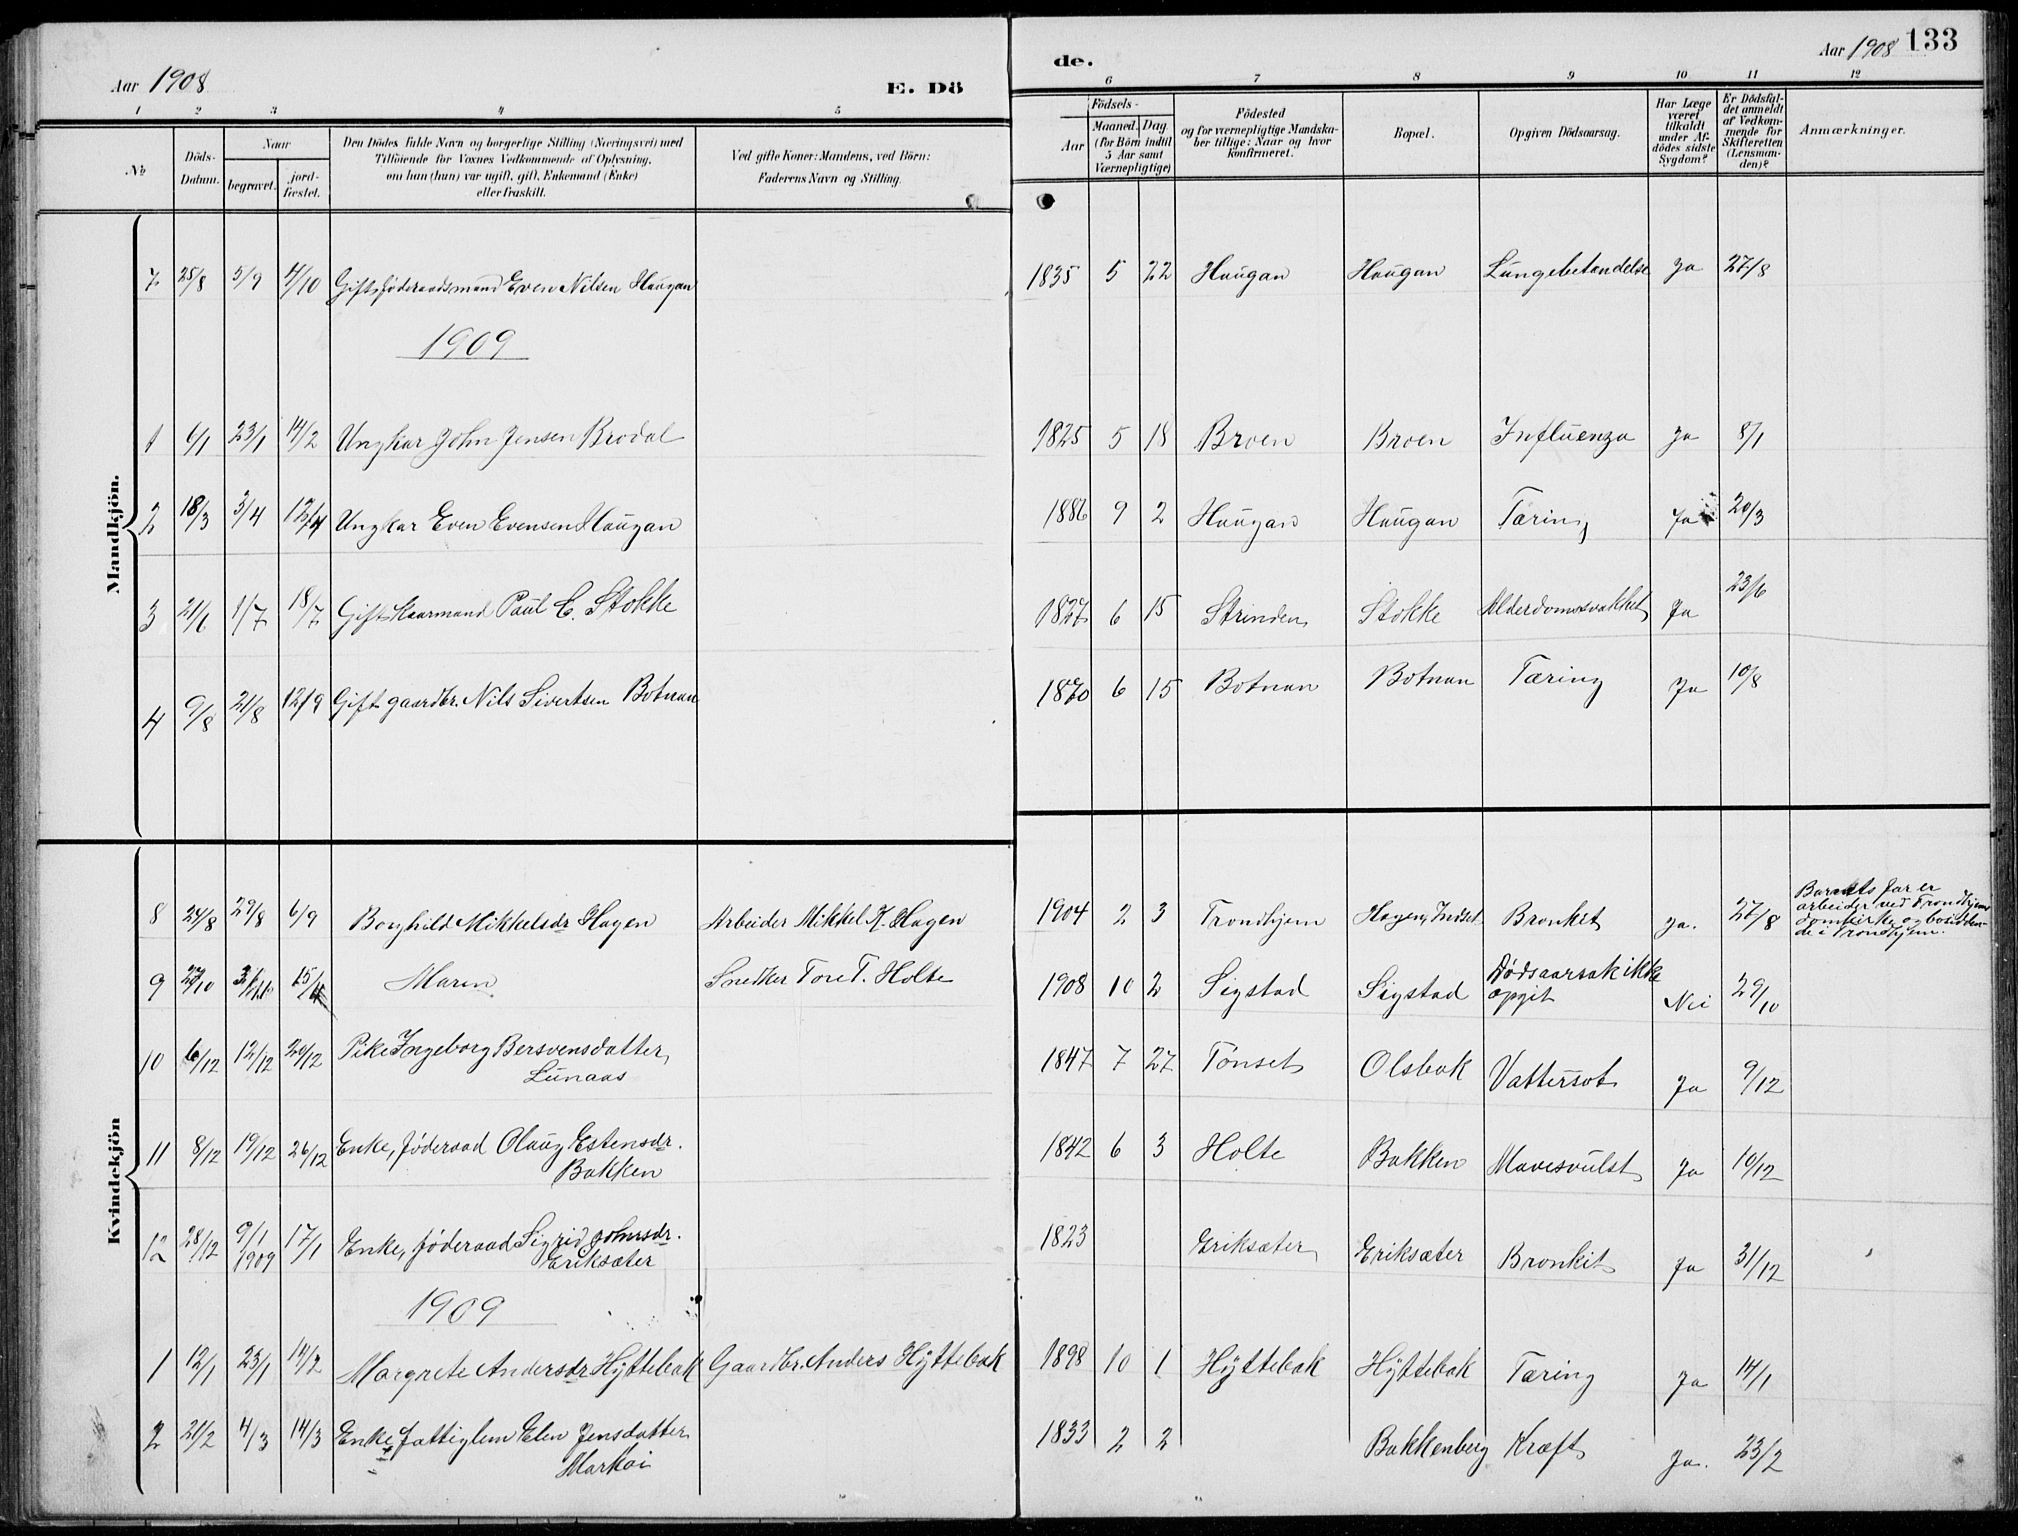 Aar 1908
E. Dö
de.
Aar 1908 133
1 2 3 4 5 6 7 8 9 10 11 12
№
Döds-
Datum.
Naar
begravet.
jord-
fæstet.
Den Dödes fulde Navn og borgerlige Stilling (Næringsvei) med
Tilföiende for Voxnes Vedkommende af Oplysning,
om han (hun) var ugift, gift, Enkemand (Enke)
eller fraskilt.
Ved gifte Koner: Mandens, ved Börn:
Faderens Navn og Stilling.
Födsels-
Aar
Maaned. Dag
(for Börn indtil
5 Aar samt
Værnepligtige)
Födested
og for værnepligtige Mandska-
ber tillige: Naar og hvor
konfirmeret.
Bopæl.
Opgiven Dödsaarsag.
Har Læge
været
tilkaldt
under Af-
dödes sidste
Sygdom?
Er Dödsfal-
det anmeldt
af Vedkom-
mende for
Skifteretten
(Lensman-
den)?
Anmærkninger.
Mandkjön.
7 25/8 5/9 4/10 Gift føderaadsmand Even Nilsen Haugan 1835 5 22 Haugan Haugan Lungebetændelse Ja 27/8
1909
1 6/1 23/1 14/2 Ungkar John Jensen Brodal 1825 5 18 Broen Broen Influenza Ja 8/1
2 18/3 3/4 12/4 Ungkar Even Evensen Haugan 1886 9 2 Haugan Haugan Tæring Ja 20/3
3 21/6 1/7 18/7 Gift Kaarmand Paul C. Stokke 1827 6 15 Strinden Stokke Alderdomssvakhet Ja 23/6
4 9/8 21/8 12/9 Gift gaardbr. Nils Sivertsen Botnan 1870 6 15 Botnan Botnan Tæring Ja 10/8
Kvindekjön
8 24/8 29/8 6/9 Borghild Mikkelsdr Hagen Arbeider Mikkel K. Hagen 1904 2 3 Trondhjem Hagen, Indset Bronkit Ja. 27/8 Barnets far er
arbeider ved Trondhjems
domkirke og bosidden-
de i Trondhjem.
9 Maren Snedker Tore T. Holte 1908 10 2 Sigstad Sigstad Dødsaarsak ikke
opgit Nei 29/10
10 6/12 12/12 20/12 Pike Ingeborg Bersvensdatter
Lunaas 1847 7 27 Tønset Olsbak Vattersot Ja 9/12
11 8/12 19/12 26/12 Enke, føderaad Olaug Estensdr.
Bakken 1842 6 3 Holte Bakken Mavesvulst Ja 10/12
12 28/12 9/1
1909 17/1 Enke, føderaad Sigrid Johnsdr.
Eriksæter 1823 Eriksæter Eriksæter Bronkit Ja 31/12
1909
1 12/1 23/1 14/2 Margrete Andersdr Hÿttebak Gaardbr. Anders Hÿttebak 1898 10 1 Hÿttebak Hÿttebak Tæring Ja 14/1
2 21/2 4/3 14/3 Enke fattiglem Elen Jensdatter
Markøi 1833 2 2 Bakkenberg Kræft Ja. 23/2